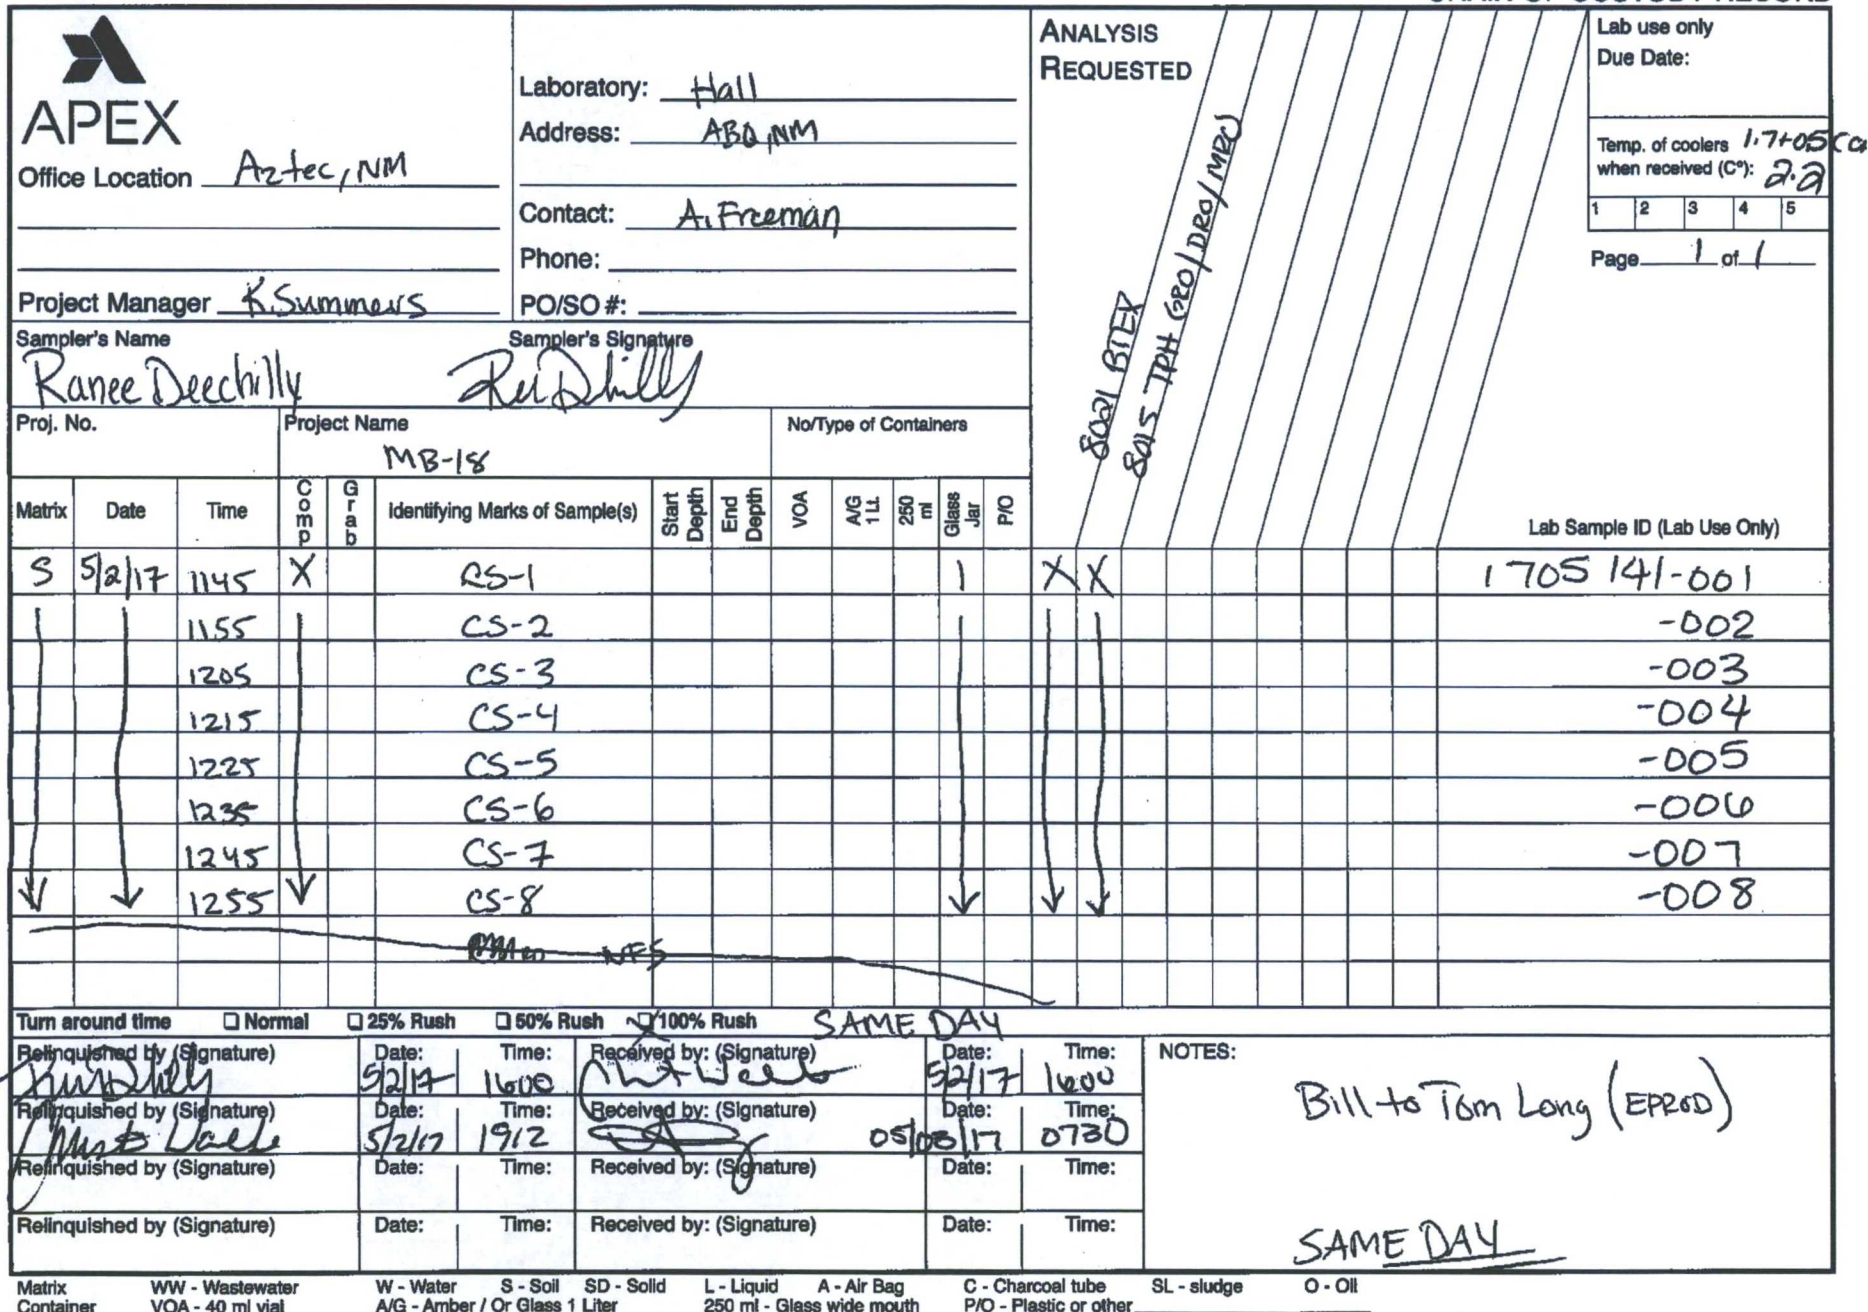 APEX
Office Location Aztec, NM
Project Manager K. Summers
Laboratory: Hall
Address: ABQ, NM
Contact: A. Freeman
Phone:
PO/SO #:
ANALYSIS
REQUESTED
8021 BTEX
8015 TPH GRO/DRO/MRO
Lab use only
Due Date:
Temp. of coolers 1.7+0.5
when received (C°): 2.2
1 2 3 4 5
Page 1 of 1
Sampler's Name
Ranee Deechilly
Sampler's Signature
Proj. No.
Project Name
MB-18
No/Type of Containers
Matrix Date Time Comp Grab Identifying Marks of Sample(s) Start Depth End Depth VOA A/G 1 Lt. 250 ml Glass Jar P/O Lab Sample ID (Lab Use Only)
S 5/2/17 1145 X CS-1 1 X X 1705141-001
1155 CS-2 -002
1205 CS-3 -003
1215 CS-4 -004
1225 CS-5 -005
1235 CS-6 -006
1245 CS-7 -007
1255 CS-8 -008
NFS
Turn around time ☐ Normal ☐ 25% Rush ☐ 50% Rush ☒ 100% Rush SAME DAY
Relinquished by (Signature) Date: 5/2/17 Time: 1600 Received by: (Signature) Date: 5/2/17 Time: 1600
Relinquished by (Signature) Date: 5/2/17 Time: 1912 Received by: (Signature) Date: 05/03/17 Time: 0730
Relinquished by (Signature) Date: Time: Received by: (Signature) Date: Time:
Relinquished by (Signature) Date: Time: Received by: (Signature) Date: Time:
NOTES:
Bill to Tom Long (EPROD)
SAME DAY
Matrix WW - Wastewater W - Water S - Soil SD - Solid L - Liquid A - Air Bag C - Charcoal tube SL - sludge O - Oil
Container VOA - 40 ml vial A/G - Amber / Or Glass 1 Liter 250 ml - Glass wide mouth P/O - Plastic or other